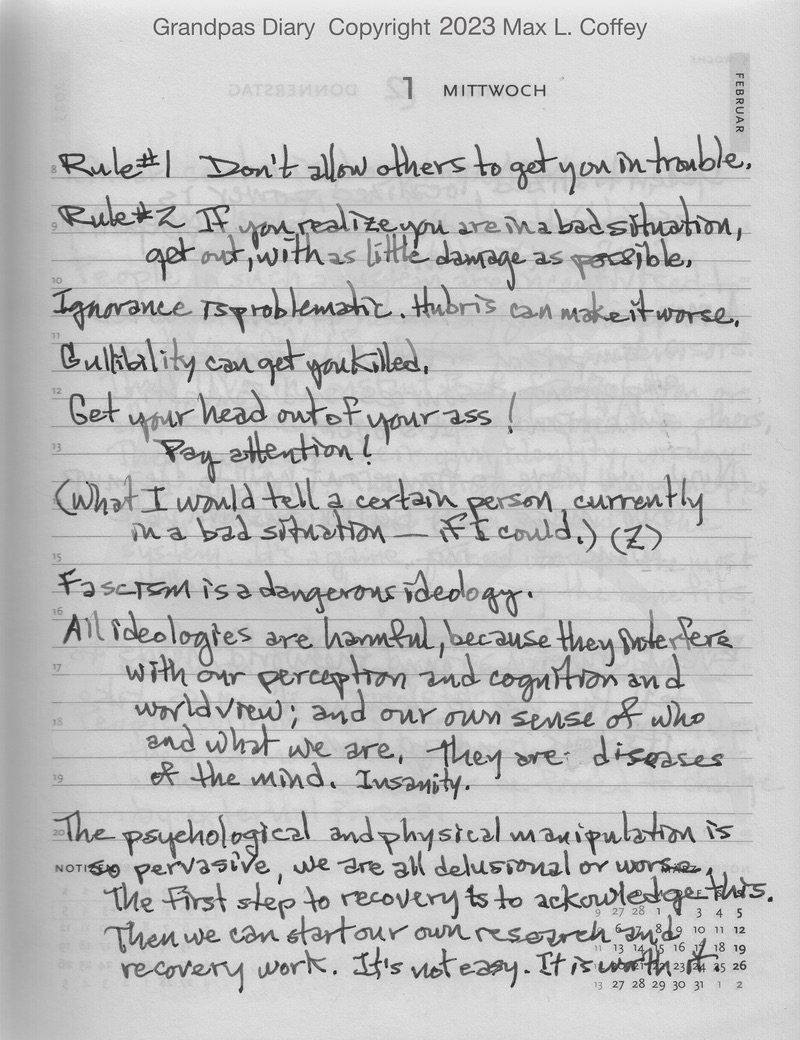 Grandpas Diary Copyright 2023 Max L. Coffey
1 MITTWOCH
FEBRUAR
8 Rule #1 Don't allow others to get you in trouble.
9 Rule #2 If you realize you are in a bad situation,
get out, with as little damage as possible.
10
Ignorance is problematic. Hubris can make it worse.
11
Gullibility can get you killed.
12
Get your head out of your ass!
13
Pay attention!
(What I would tell a certain person, currently
in a bad situation — if I could.) (Z)
15
Fascism is a dangerous ideology.
16
All ideologies are harmful, because they interfere
17
with our perception and cognition and
worldview; and our own sense of who
18
and what we are. They are diseases
19
of the mind. Insanity.
20 The psychological and physical manipulation is
so pervasive, we are all delusional or worse.
The first step to recovery is to ackowledge this.
Then we can start our own research and
recovery work. It's not easy. It is worth it.
NOTIZEN
MÄRZ
9 27 28 1 3 4 5
6 8 9 10 11 12
11 13 14 15 16 17 18 19
21 22 23 24 25 26
13 27 28 29 30 31 1 2